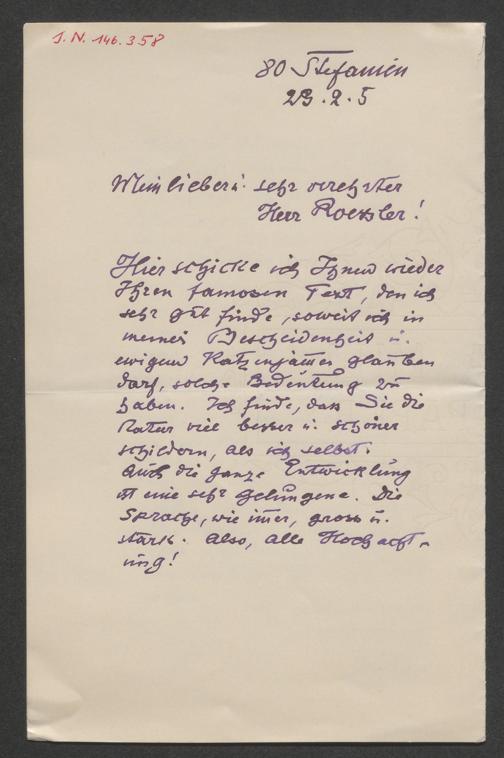 J. N. 146.358
80 Stefanien
23.2.5
Mein lieber u. sehr verehrter
Herr Roessler!
Hier schicke ich Ihnen wieder
Ihren famosen Text, den ich
sehr gut finde, soweit ich in
meiner Bescheidenheit u.
ewigem Katzenjammer glauben
darf, solche Bedeutung zu
haben. Ich finde, dass Sie die
Natur viel besser u. schöner
schildern, als ich selbst.
Auch die ganze Entwicklung
ist eine sehr gelungene. Die
Sprache, wie immer, gross u.
stark. Also, alle Hochacht-
ung!